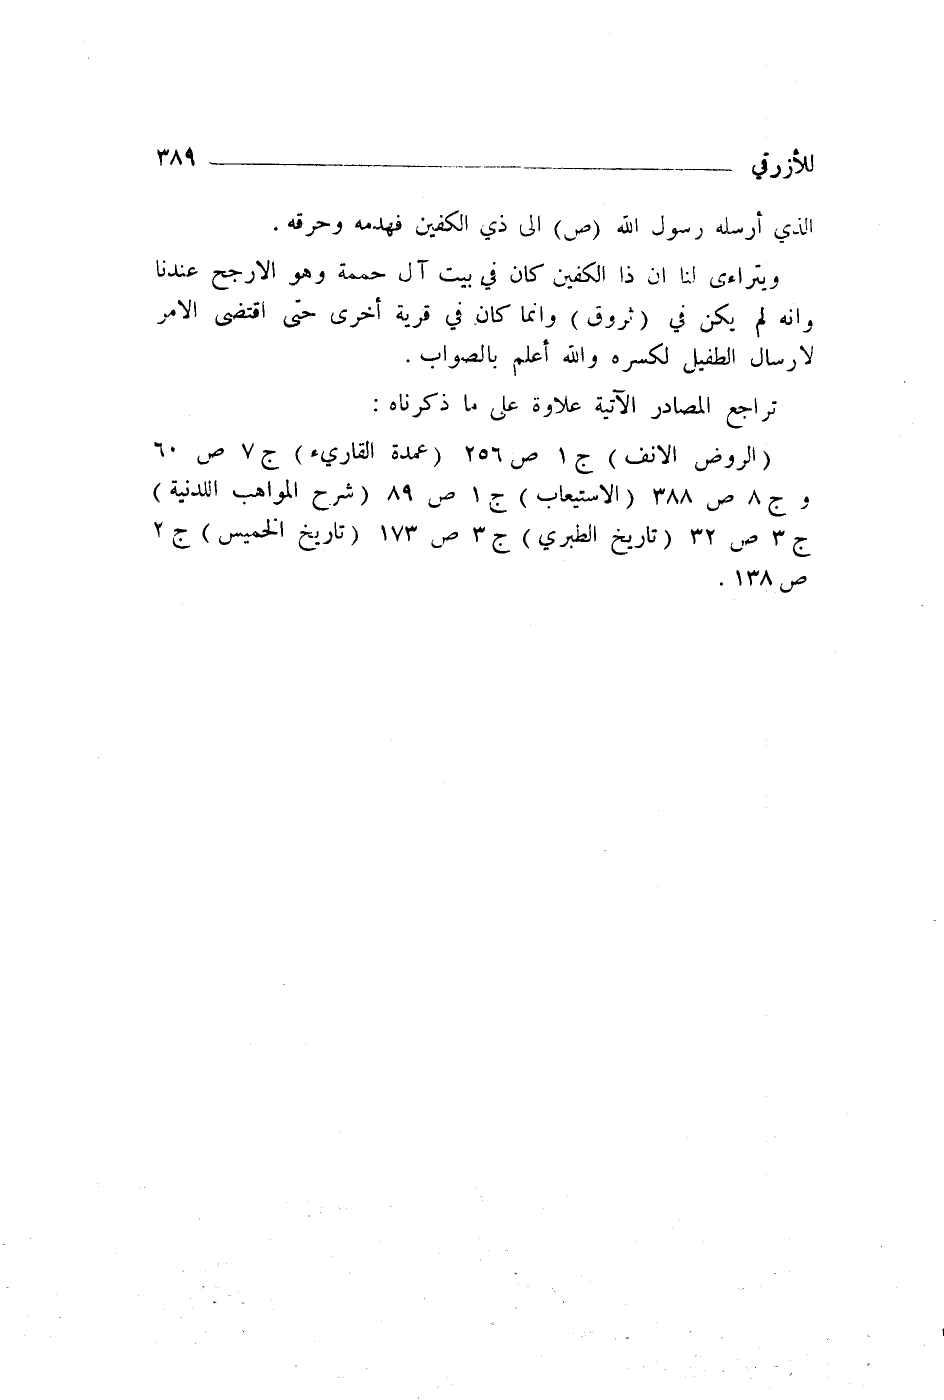 للأزرقي ٣٨٩
الذي أرسله رسول الله (ص) الى ذي الكفين فهدمه وحرقه .
ويتراءى لنا ان ذا الكفين كان في بيت آل حممة وهو الارجح عندنا
وانه لم يكن في (ثروق) وانما كان في قرية أخرى حتى اقتضى الامر
لارسال الطفيل لكسره والله أعلم بالصواب .
تراجع المصادر الآتية علاوة على ما ذكرناه :
(الروض الانف) ج ١ ص ٢٥٦ (عمدة القاريء) ج ٧ ص ٦٠
و ج ٨ ص ٣٨٨ (الاستيعاب) ج ١ ص ٨٩ (شرح المواهب اللدنية)
ج ٣ ص ٣٢ (تاريخ الطبري) ج ٣ ص ١٧٣ (تاريخ الخميس) ج ٢
ص ١٣٨ .